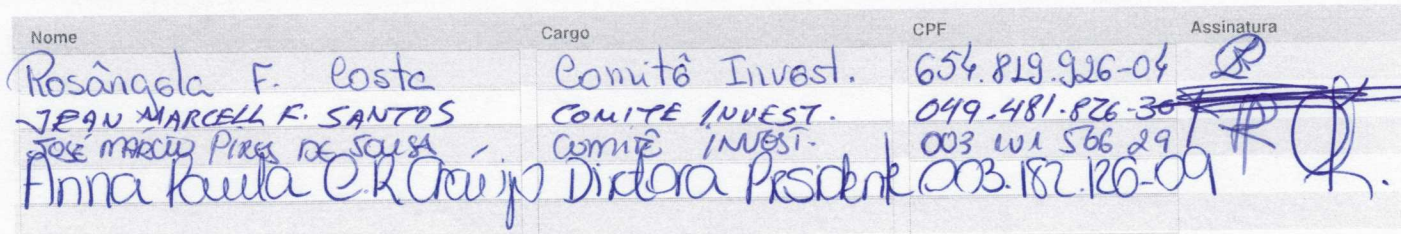 Nome Cargo CPF Assinatura
Rosângela F. Costa Comitê Invest. 654.819.926-04
JEAN MARCELL F. SANTOS COMITE INVEST. 049.481.826-30
JOSÉ MÁRCIO PIRES DE SOUSA COMITÊ INVEST. 003 566 29
Anna Paula C R Araújo Diretora Presidente 003.182.126-09